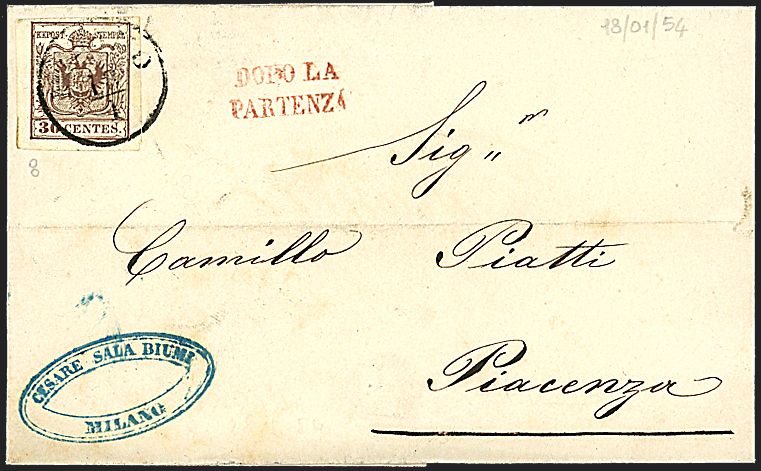 18/01/54
KKPOST-STEMPEL
30 CENTES.
8
DOPO LA
PARTENZA
Sig"r
Camillo Piatti
Piacenza
CESARE SALA BIUMI
MILANO